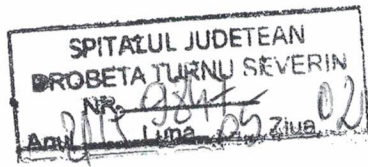 SPITALUL JUDETEAN
DROBETA TURNU SEVERIN
NR.
Anul Luna Ziua 02